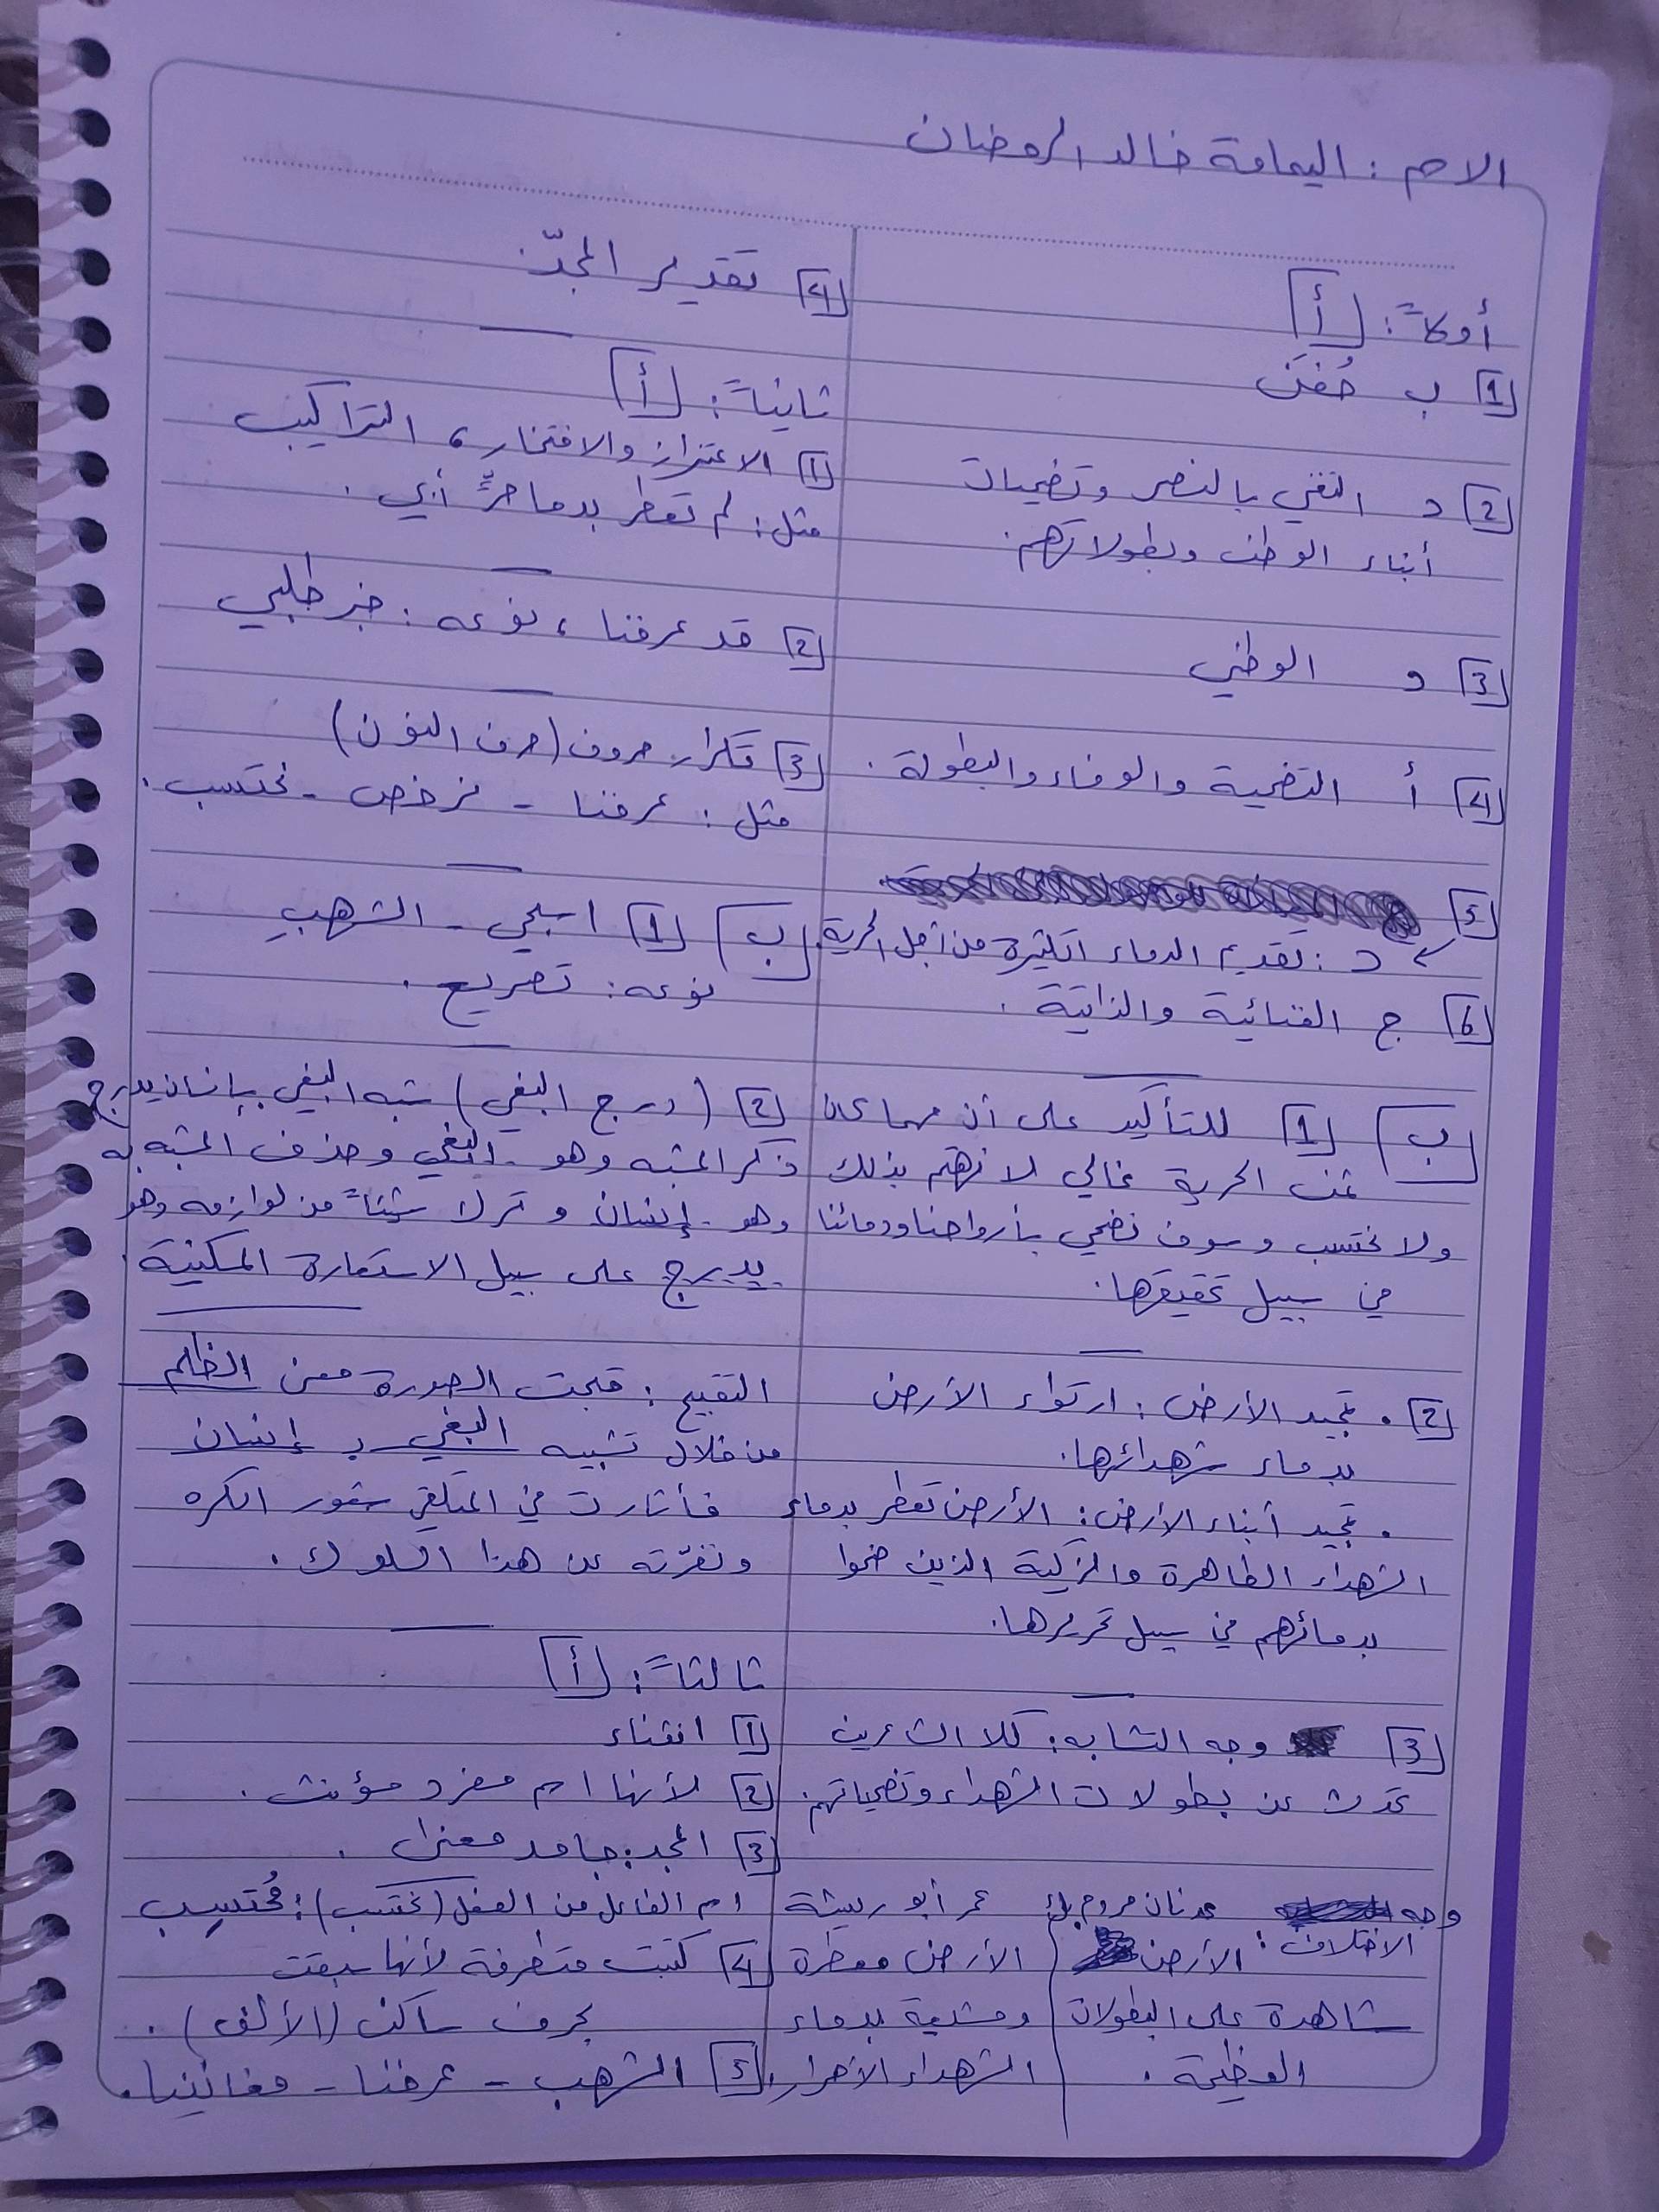 الاسم : اليمامة خالد الرمضان
أولاً : أ
1 ب خفن
2 د التغني بالنصر وتضحيات
أبناء الوطن وبطولاتهم .
3 د الوطني
4 أ التضحية والوفاء والبطولة .
5
د : تقديم الدماء الكثيرة من أجل الحرية .
6 ج الغنائية والذاتية .
ب 1 للتأكيد على أن مهما كان
ثمن الحرية غالي لا نهتم بذلك
ولا نحتسب وسوف نضحي بأرواحنا ودمائنا
في سبيل تحقيقها .
2 . تمجيد الأرض : ارتواء الأرض
بدماء شهدائها .
. تمجيد أبناء الأرض : الأرض تعطر بدماء
الشهداء الطاهرة والزكية الذين ضحوا
بدمائهم في سبيل تحريرها .
3 وجه التشابه : كلا الشاعرين
تحدث عن بطولات الشهداء وتضحياتهم .
وجه الاختلاف : عدنان مردم بك
الأرض
شاهدة على البطولات
العظيمة .
عمر أبو ريشة
الأرض معطرة
بدماء
الشهداء الأحرار .
4 تقدير المجدّ .
ثانياً : أ
1 الاعتزاز والافتخار ، التراكيب
مثل : لم تعطر بدما حرٍّ أبي .
2 قد عرفنا ، نوعه : خبر طلبي
3 تكرار حروف ( حرف النون )
مثل : عرفنا - نرخص - نحتسب .
ب 1 اسحبي - الشهبِ
نوعه : تصريع .
2 ( درج البغي ) شبه البغي بإنسان يدرج
ذكر المشبه وهو البغي وحذف المشبه به
وهو إنسان و ترك شيئاً من لوازمه وهو
يدرج على سبيل الاستعارة المكنية .
التقبيح : قبحت الصورة معنى الظلم
من خلال تشبيه البغي بـ إنسان
فأثارت في المتلقي شعور الكره
ونفرّته عن هذا السلوك .
ثالثاً : أ
1 انقناء
2 لأنها اسم مفرد مؤنث .
3 المجد : جامد معنى .
اسم الفاعل من الفعل ( نحتسب ) : مُحتسِب
4 كتبت متطرفة لأنها سبقت
بحرف ساكن ( الألف ) .
5 الشهب - عرفنا - مغانينا .